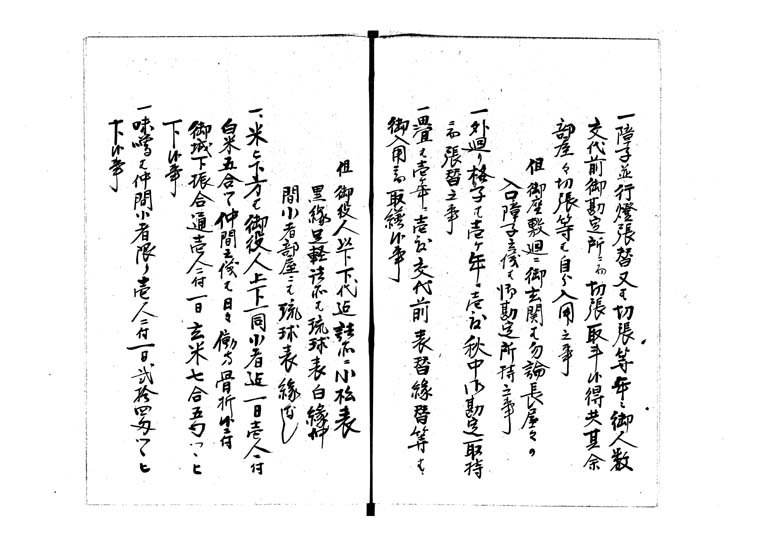 一障子並行燈張替又は切張等年々御人数
交代前御勘定所ニ而切張取斗候得共其余
部屋々切張等は自分入用之事
但御座敷廻ニ御玄関は勿論長屋々の
入口障子之儀は御勘定所持之事
一外廻り格子は壱ケ年ニ壱度秋中御勘定取持
ニ而張替之事
一畳は壱年ニ壱度交代前表替縁替等は
御入用ニ而取繕候事
但御役人以下下代迄詰所ニ小松表
黒縁足軽詰所は琉球表白縁仲
間小者部屋ニは琉球表縁なし
一米被下方は御役人上下一同小者迄一日壱人ニ付
白米五合ツヽ仲間之儀は日々働方骨折候ニ付
御城下振合通壱人ニ付一日玄米七合五勺ツヽ被
下候事
一味噌は仲間小者限り壱人ニ付一日弐拾四匁ツヽ被
下候事